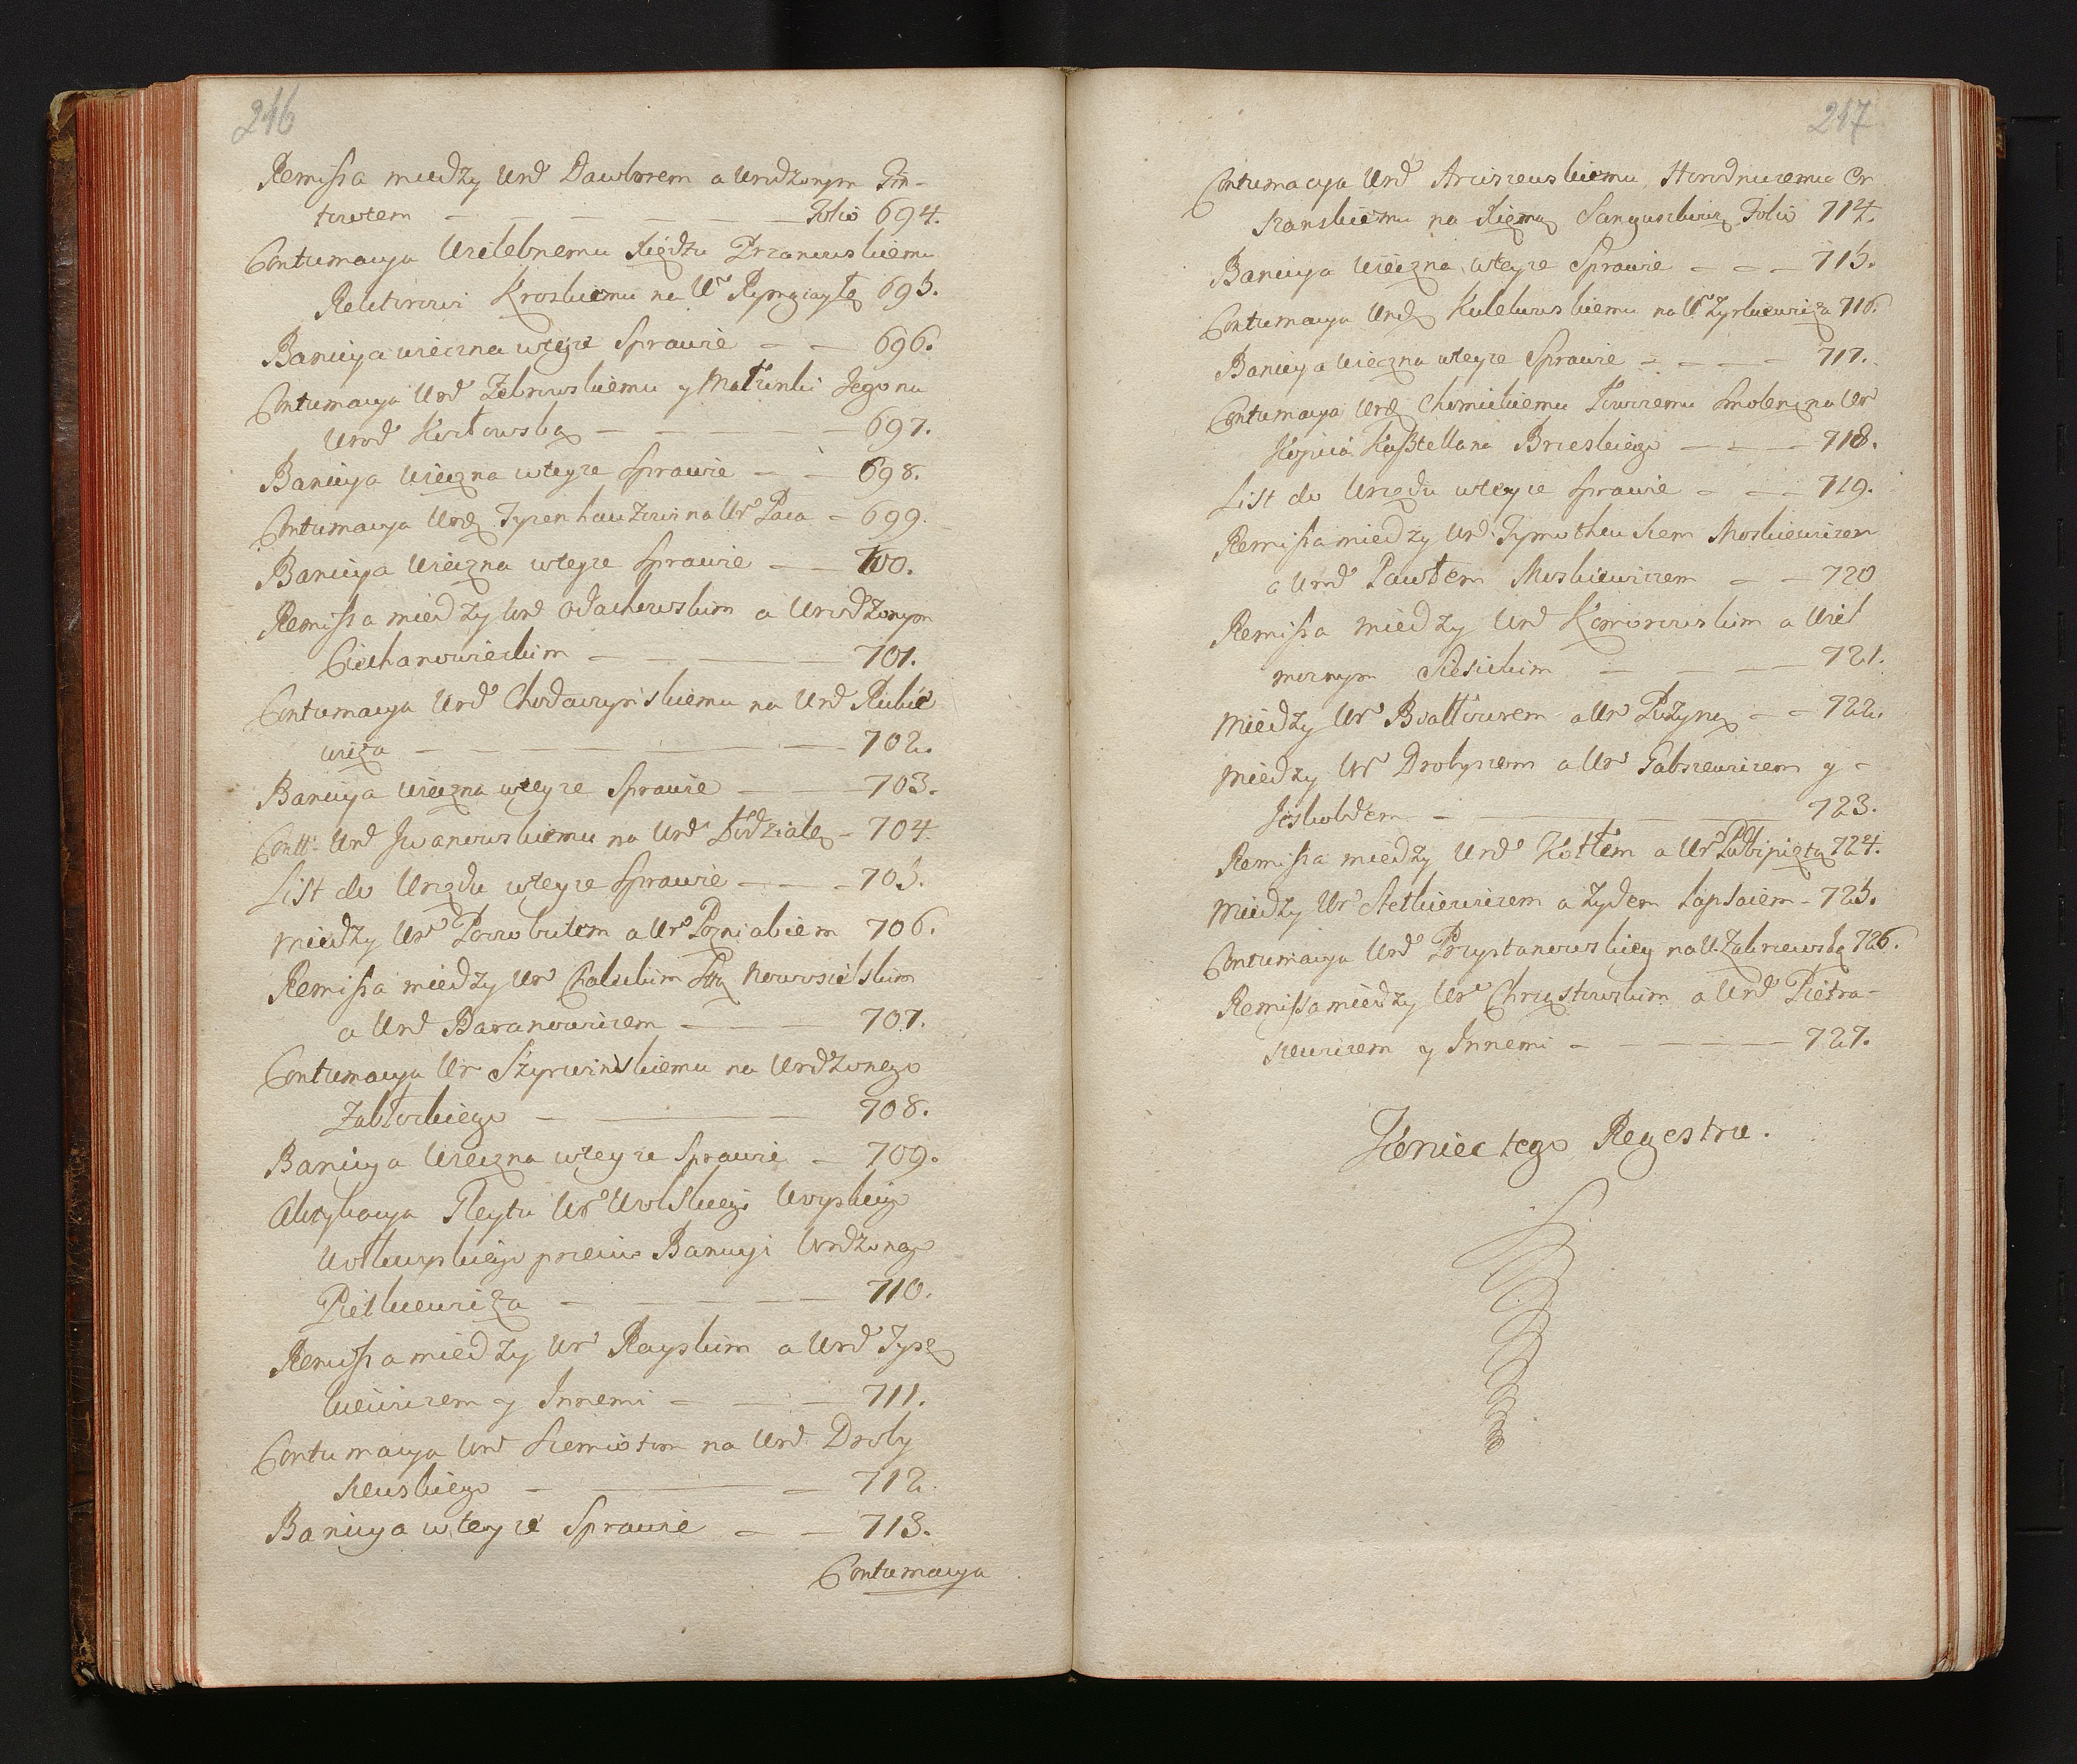 246
Remissa miedzy Urd Dawborem a Urodzonym Gin-
towtem — — — — — — Folio 694.
Contumacya Wielebnemu Xiędzu Przanowskiemu
Rektorowi Kroskiemu na Ur Rymgiayłę 695.
Banicya wieczna wteyze Sprawie — — 696.
Contumacya Urd Zebrowskiemu y Małzonki Jego na
Urod Kozłowską — — — — 697.
Banicya wieczna wteyze Sprawie — — 698.
Contumacya Urod Tyzenhauzowi na Ur Paca — 699.
Banicya wieczna wteyze Sprawie — — 700.
Remissa miedzy Urd Odachowskim a Urodzonym
Ciechanowieckim — — — 701.
Contumacya Urd Chodawzynskiemu na Urd Rukie
wicza — — — — — 702.
Banicya wieczna wteyze Sprawie — — 703.
Contt: Urd Jwanowskiemu na Urd Łodziatę — 704.
List do Urzędu wteyze Sprawie — — — 705.
miedzy Ur Pozzobutem a Ur Pozniakiem 706.
Remissa miedzy Ur Chaleckim Sttą Nowosielskim
a Urd Baranowiczem — — — 707.
Contumacya Ur Szyrwinskiemu na Urodzonego
Zabłockiego — — — 708.
Banicya wieczna wteyze Sprawie — 709.
Aktykacya Gleytu Ur Wolskiego Woyskiego
Wołkowyskiego przeciw Banicyi Urodzonego
Pietkiewicza — — — — 710.
Remissa miedzy Ur Rayskim a Urd Tysz
kiewiczem y Innemi — — — 711.
Contumacya Urd Siemiotom na Urd Droby
szewskiego — — — 712.
Banicya wteyze Sprawie — — 713.
Contumacya
247
Contumacya Urd Arciszewskiemu Horodniczemu Or
szanskiemu na Xiężnę Sanguszkową Folio 714.
Banicya wieczna wteyze Sprawie — — — 715.
Contumacya Urod Kulekowskiemu na Ur Zyrkiewicza 716.
Banicya wieczna wteyze Sprawie — — — 717.
Contumacya Urod Chomickiemu Łowczemu Smolen: na Ur
Kopcia Kasztellana Brzeskiego — — — 718.
List do Urzędu wteyze Sprawie — — — 719.
Remissa miedzy Urd Tymotheuszem Moskiewiczem
a Urod Pawłem Moskiewiczem — — 720
Remissa miedzy Urd Komorowskim a Wiel
moznym Siesickim — — — 721.
Miedzy Ur Bvałłowem a Ur Puzyną — — 722.
Miedzy Ur Drobyszem a Ur Gabszewiczem y —
Jeskołdem — — — — 723.
Remissa miedzy Urd Kotłem a Ur Zabipiętą 724.
Miedzy Ur Stetkiewiczem a Zydem Łapsaiem — 725.
Contumacya Urd Przystanowskiey na U. Zakrzewską 726.
Remissa miedzy Ur Chrząstowskim a Urd Pietra-
szewiczem y Innemi — — — — 727.
Koniec tego Regestru.